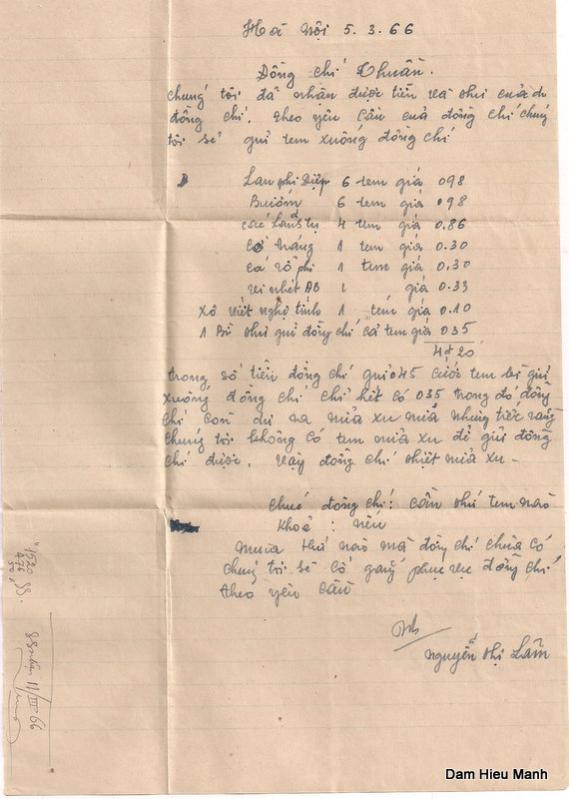 Hà Nội 5.3.66
Đồng chí Thuần.
chúng tôi đã nhận được tiền và thư của
đồng chí. theo yêu cầu của đồng chí chúng
tôi sẽ gửi tem xuống đồng chí
Lan phi Điệp 6 tem giá 098
Bướm 6 tem giá 098
4 tem giá 0.86
1 tem giá 0.30
cá rô phi 1 tem giá 0.30
1 giá 0.33
Xô viết nghệ tĩnh 1 tem giá 0.10
1 Bì thư gửi đồng chí cả tem giá 035
4đ20
trong số tiền đồng chí gửi 045 cước tem để gửi
xuống đồng chí chỉ hết có 035 trong đó đồng
chí còn dư ra nửa xu nữa nhưng tiếc rằng
chúng tôi không có tem nửa xu để gửi đồng
chí được. vậy đồng chí thiệt nửa xu -
chúc đồng chí: cần thứ tem nào
khoẻ: nếu
mua thứ nào mà đồng chí chưa có
chúng tôi sẽ cố gắng phục vụ đồng chí
theo yêu cầu
nguyễn thị Lâm
11/III 66
Dam Hieu Manh